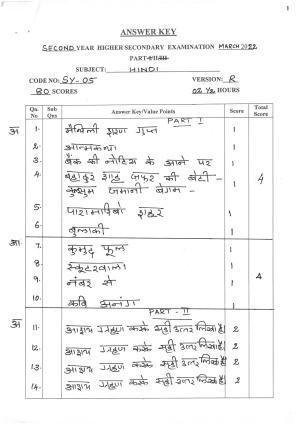 ANSWER KEY
SECOND YEAR HIGHER SECONDARY EXAMINATION MARCH 2022
PART-I/II/III
SUBJECT: HINDI
CODE NO: SY-05 VERSION: R
80 SCORES 02 ½ HOURS
Qn. No Sub Qns Answer Key/Value Points Score Total Score
PART I
अ 1. मैथिली शरण गुप्त 1
2. आत्मकथा 1
3. बैंक की नोटिस के आने पर 1
4. बहादुर शाह ज़फर की बेटी - 1 4
कुलसुम ज़मानी बेगम
5. पारामारिबो शहर 1
6. बुलाकी 1
आ 7. कुमुद फूल 1
8. स्कूटरवाला 1
9. नंबर से 1 4
10. कवि अनंग 1
PART - II
अ 11. आशय ग्रहण करके सही उत्तर लिखा है। 2
12. आशय ग्रहण करके सही उत्तर लिखा है। 2
13. आशय ग्रहण करके सही उत्तर लिखा है। 2
14. आशय ग्रहण करके सही उत्तर लिखा है। 2